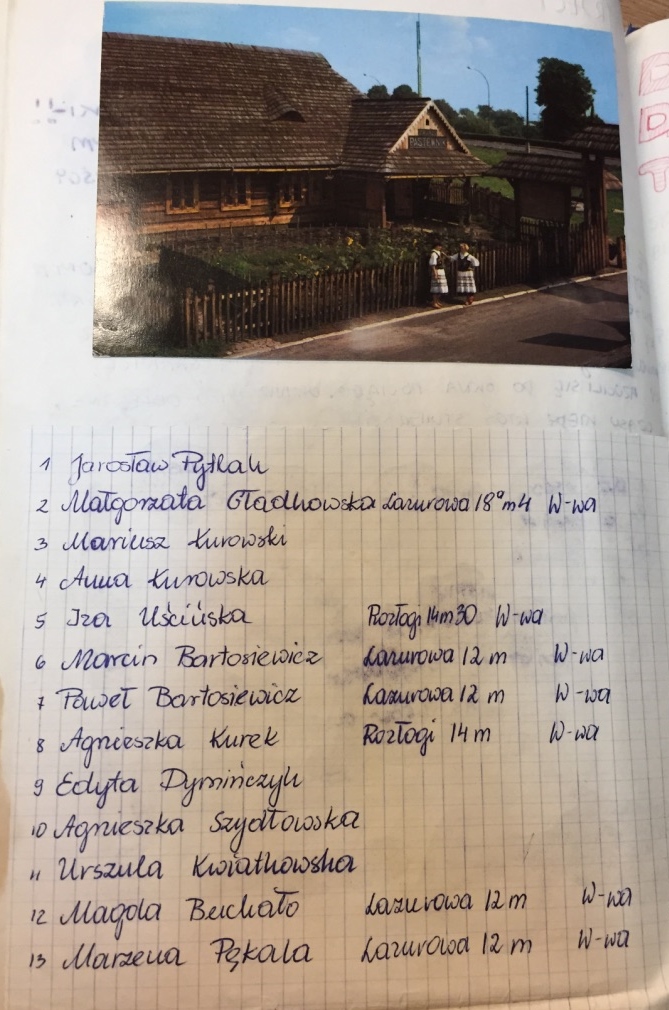 PASTERNIK
1 Jarosław Pytlak
2 Małgorzata Gładkowska Lazurowa 18ᵃ m 4 W-wa
3 Mariusz Kurowski
4 Anna Kurowska
5 Iza Uścińska Rozłogi 14 m 30 W-wa
6 Marcin Bartosiewicz Lazurowa 12 m W-wa
7 Paweł Bartosiewicz Lazurowa 12 m W-wa
8 Agnieszka Kurek Rozłogi 14 m W-wa
9 Edyta Dymińczyk
10 Agnieszka Szydłowska
11 Urszula Kwiatkowska
12 Magda Buchało Lazurowa 12 m W-wa
13 Marzena Pękala Lazurowa 12 m W-wa